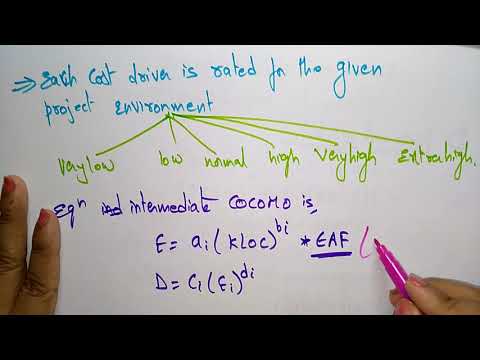 ⇒ Each cost driver is rated for the given
project environment
Very low low normal high Very high Extra high.
Eqn intermediate COCOMO is,
E = ai (KLOC)^bi * EAF (
D = Ci (Ei)^di